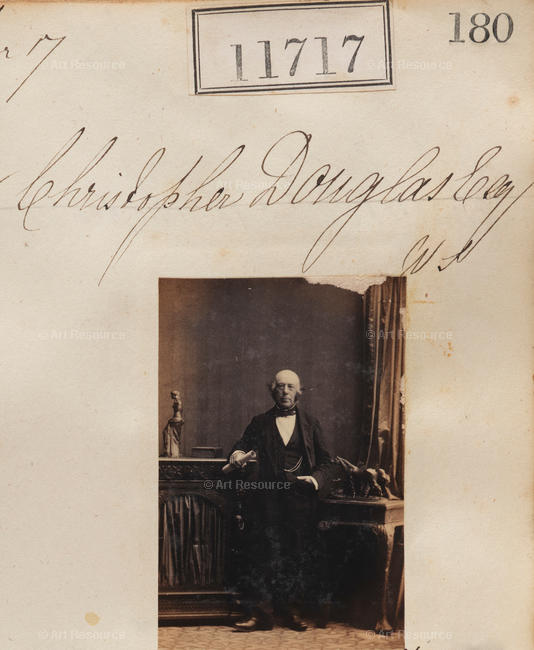 180
11717
r 7
Christopher Douglas Esq
W S
© Art Resource
© Art Resource
© Art Resource
© Art Resource
© Art Resource
© Art Resource
© Art Resource
© Art Resource
© Art Resource